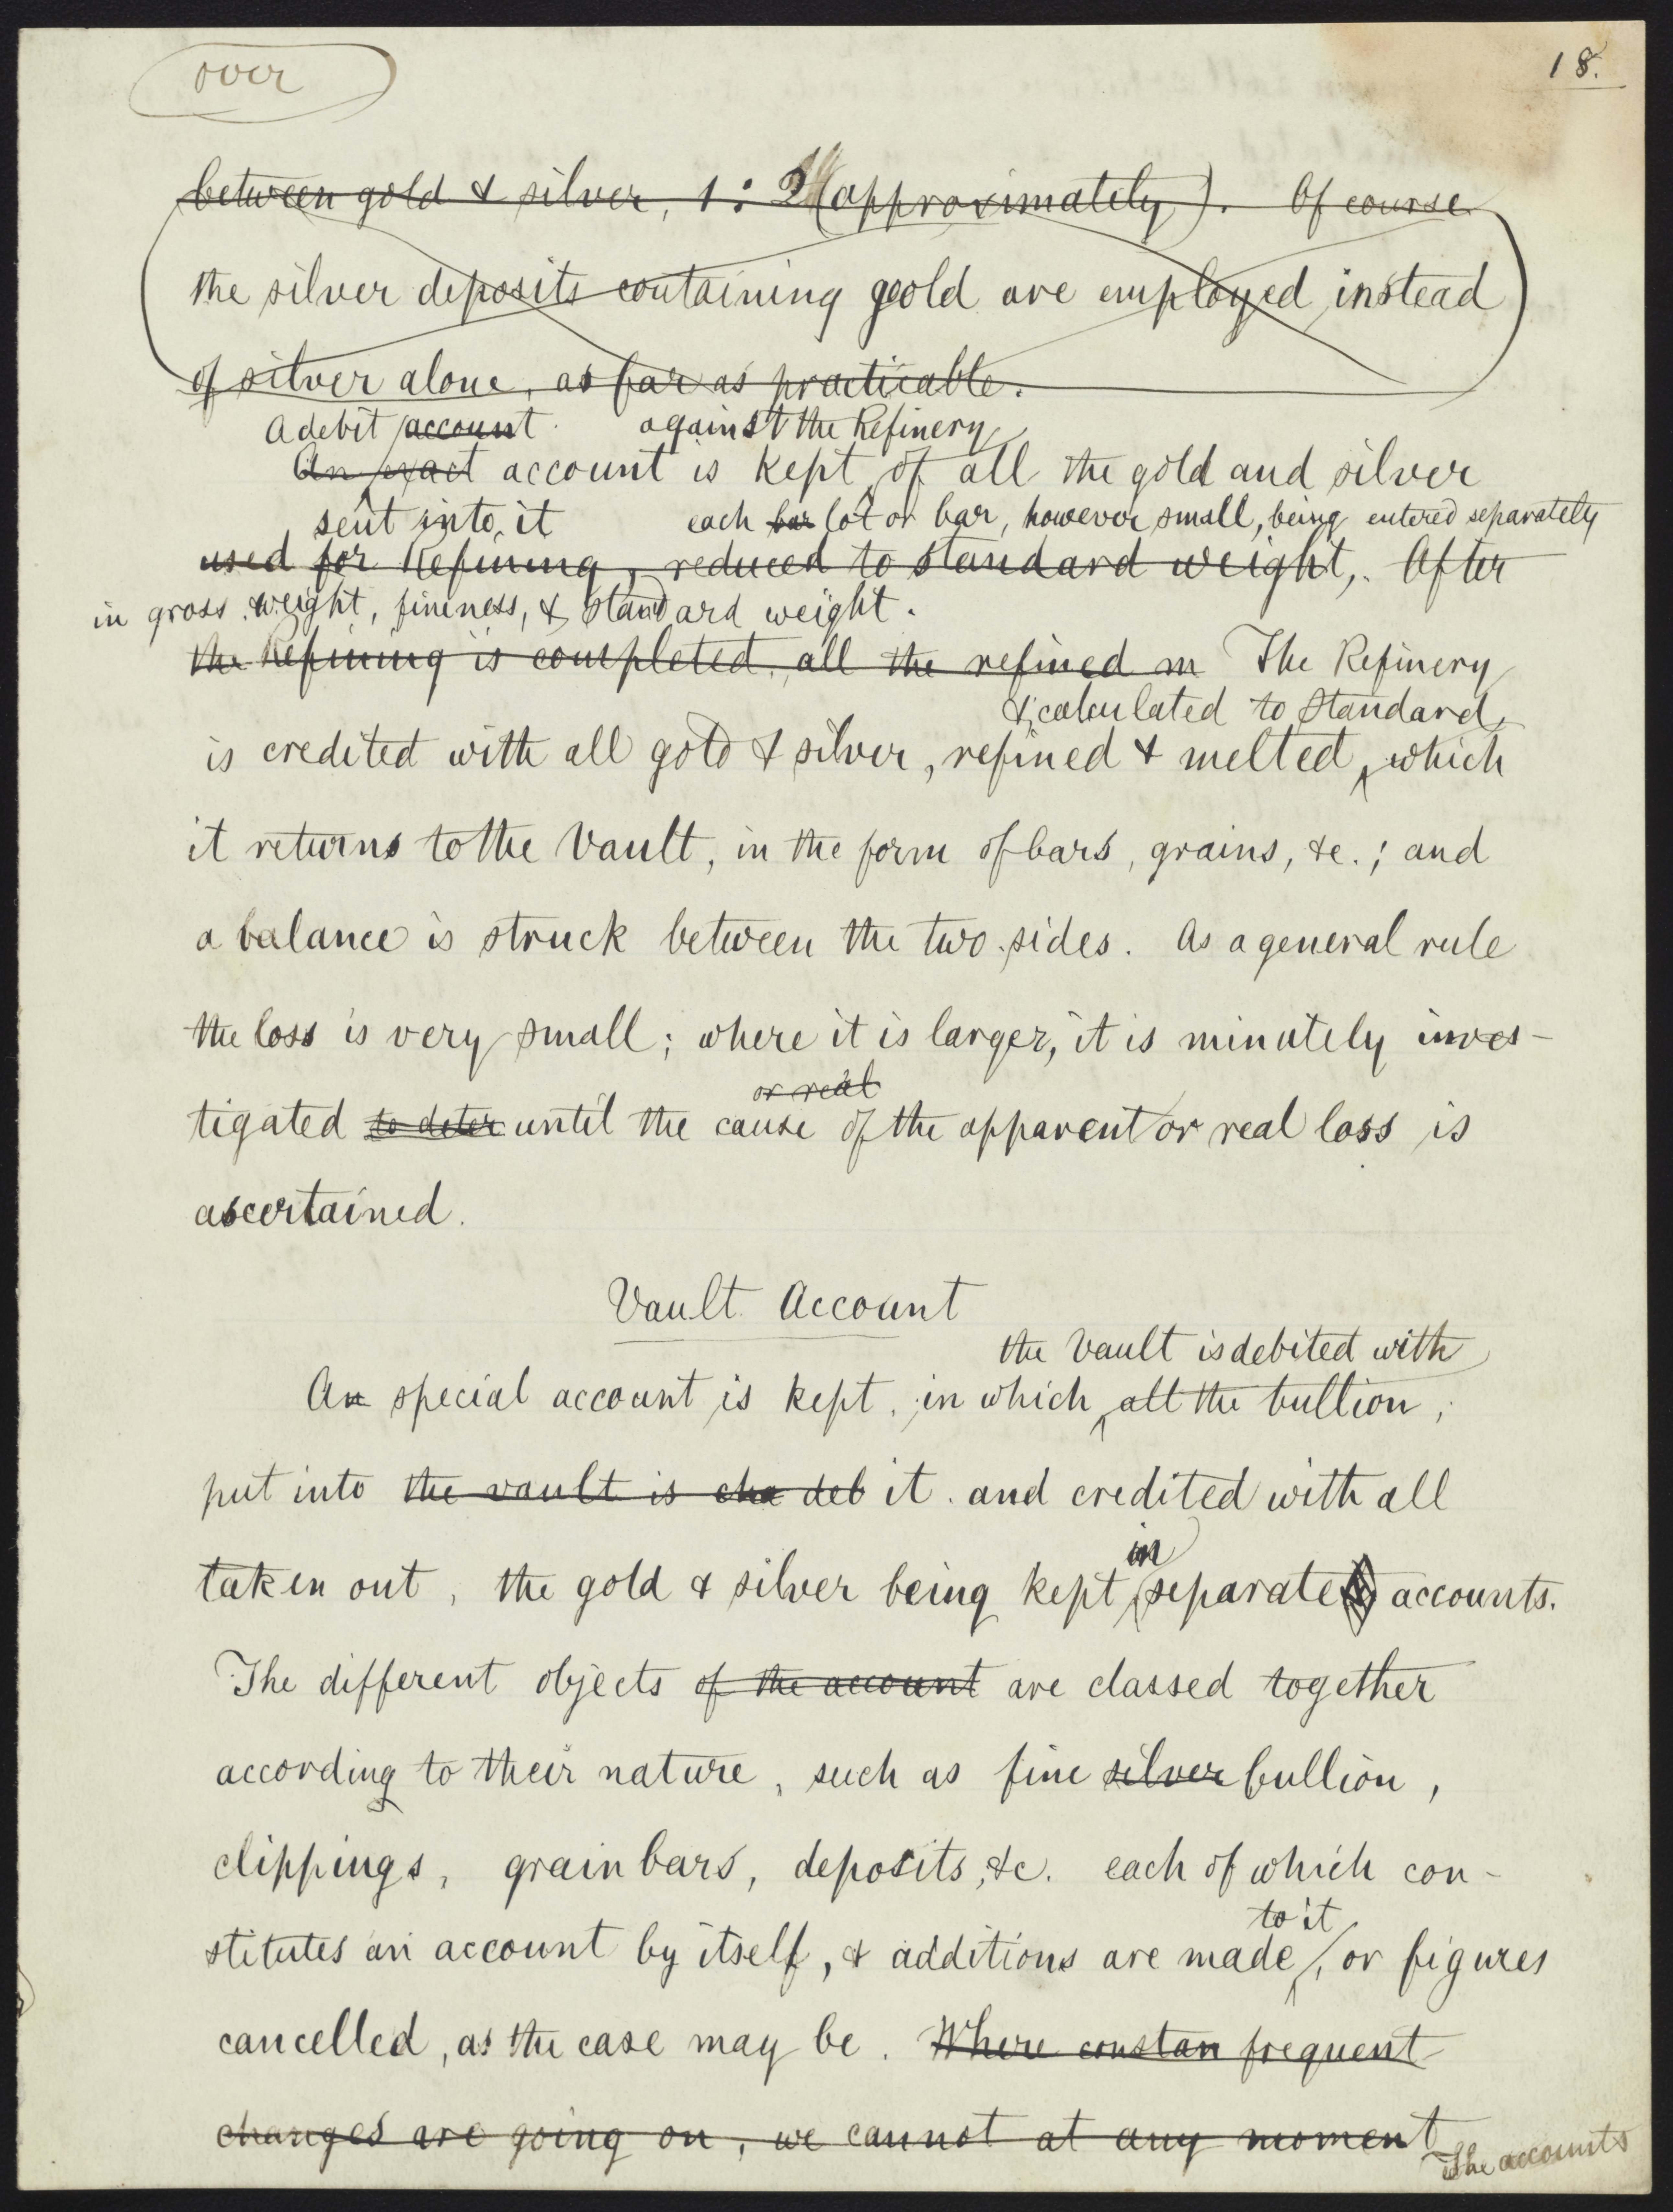 over
18.
between gold & silver, 1 : 2 (approximately). Of course
the silver deposits containing gold are employed instead
of silver alone, as far as practicable.
A debit account against the Refinery
An exact account is kept of all the gold and silver
sent into it each bar lot or bar, however small, being entered separately
used for Refining, reduced to standard weight,. After
in gross weight, fineness, & standard weight.
the Refining is completed, all the refined m The Refinery
& calculated to standard,
is credited with all gold & silver, refined & melted, which
it returns to the Vault, in the form of bars, grains, &c.; and
a balance is struck between the two sides. As a general rule
the loss is very small; where it is larger, it is minutely inves-
or real
tigated to deter until the cause of the apparent or real loss is
ascertained.
Vault Account
the Vault is debited with
An special account is kept, in which all the bullion,
put into the vault is cha deb it. and credited with all
in
taken out, the gold & silver being kept separate accounts.
The different objects of the account are classed together
according to their nature, such as fine silver bullion,
clippings, grain bars, deposits, &c. each of which con-
to it
stitutes an account by itself, & additions are made, or figures
cancelled, as the case may be. Where constan frequent
changes are going on, we cannot at any moment
The accounts